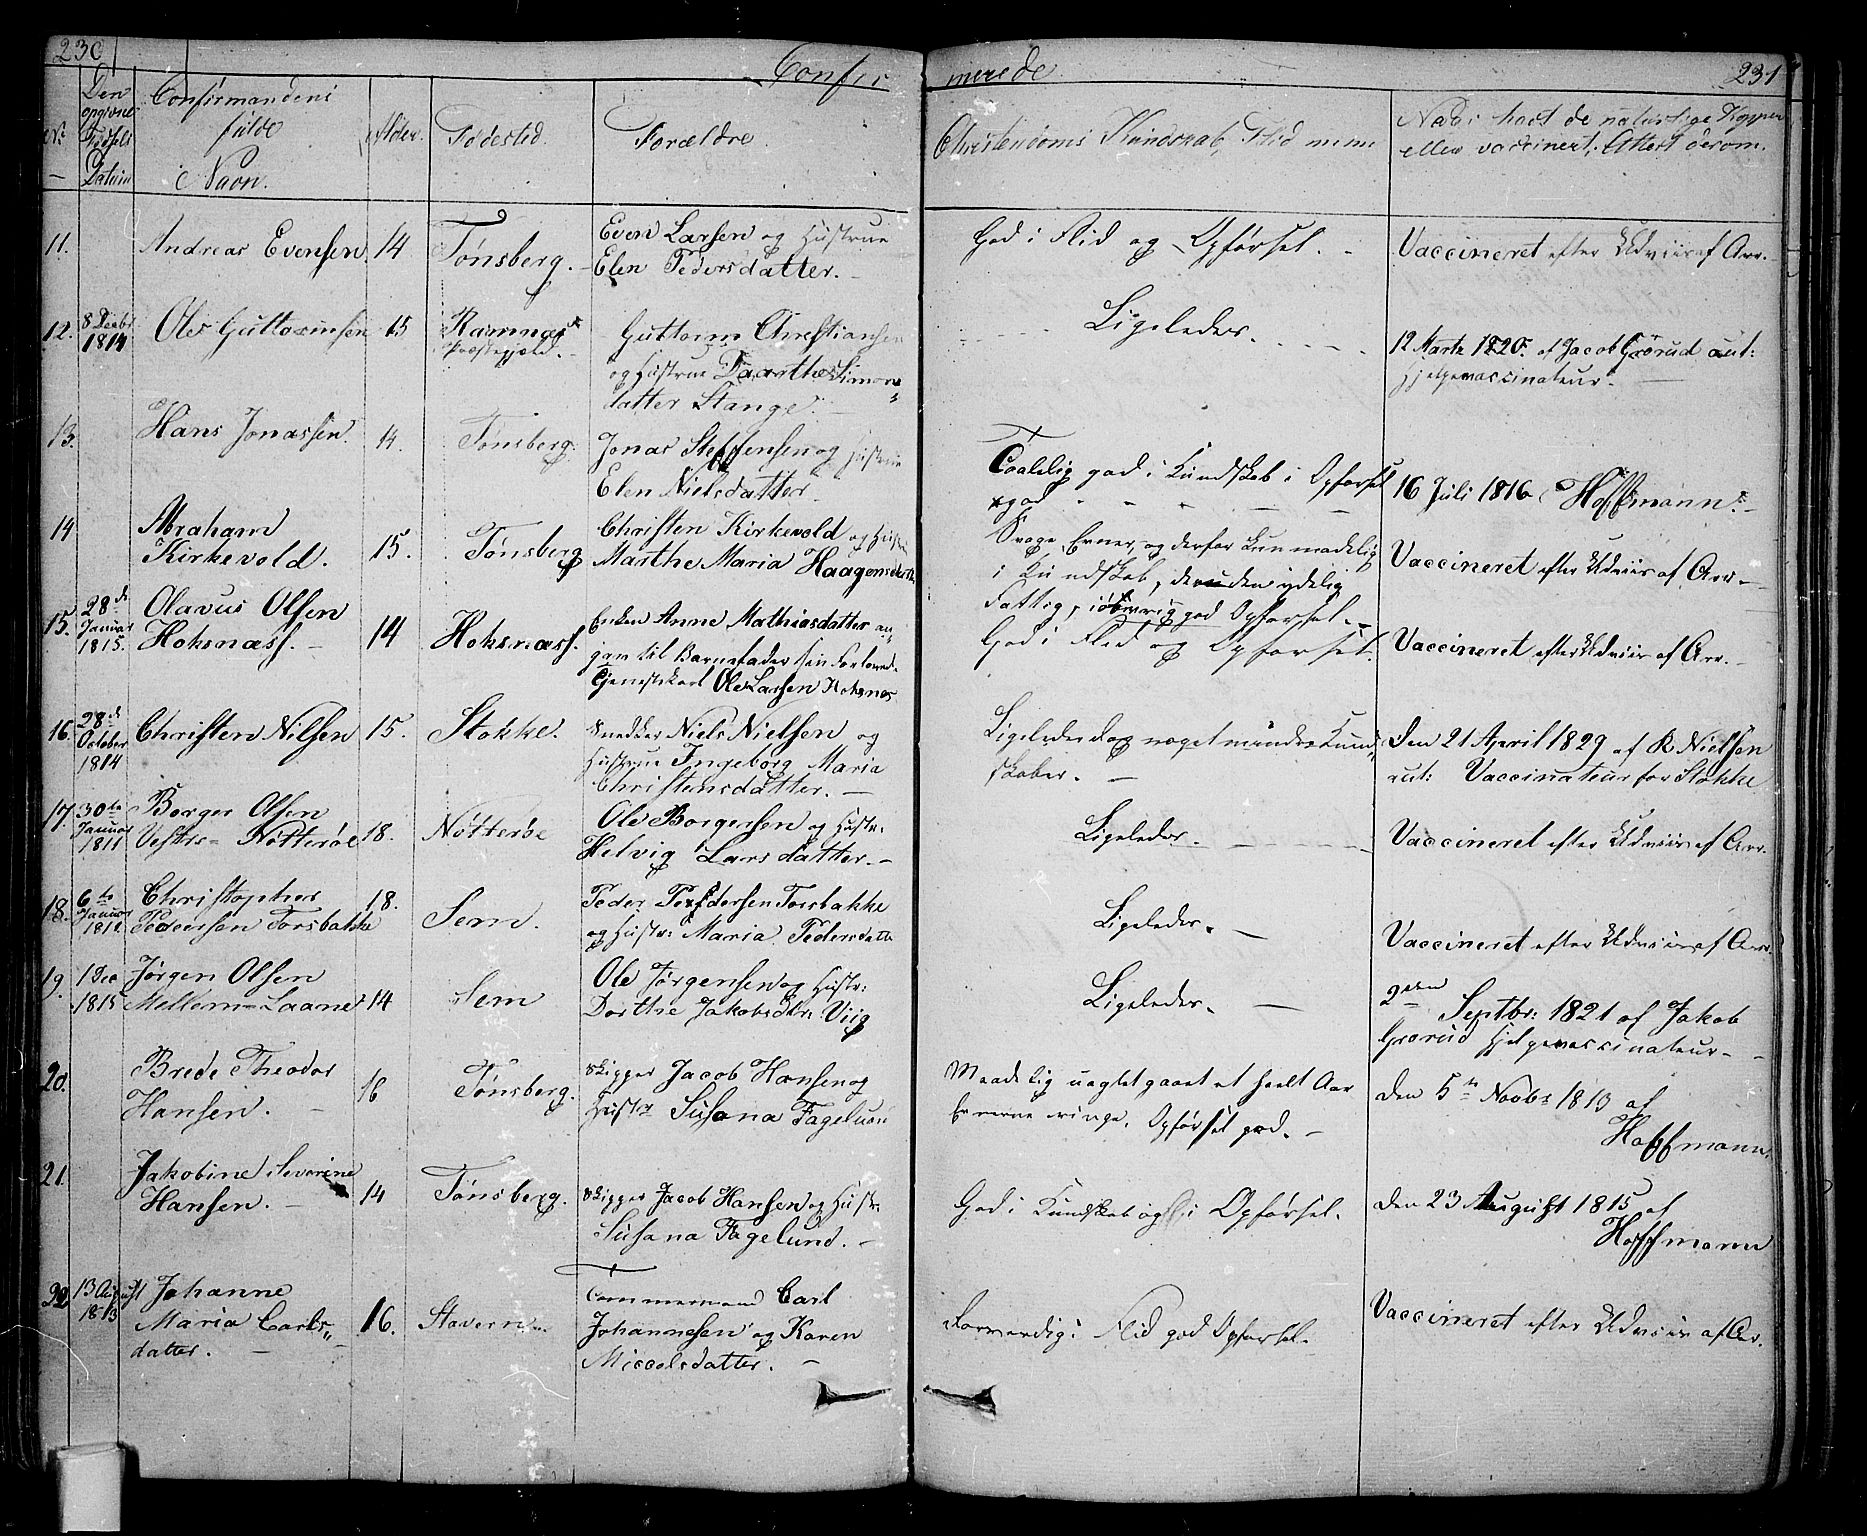 230
Confir
merede
231
No
Den opgivne Fødsels Datum
Confirmandens fulde Navn.
Alder.
Fødested.
Forældre.
Christendoms Kundskab, Flid
Naar havt de naturlige Kopper
eller vaccineret, Attest derom.
11.
Andreas Evensen
14
Tønsberg.
Even Larsen og Hustrue
Elen Pedersdatter.
God i Flid og Opførsel.
Vaccineret efter Udviis af Arr.
12.
8 Decbr
1814
Ole Guttormsen
15
Ramnæs
Præstegjeld.
Guttorm Christiansen
og Hustrue Daarthe Simons
datter Stange.
Ligeledes.
12 Marts 1820. af Jacob Grorud aut:
Hjelpevaccinateur.
13.
Hans Jonassen.
14.
Tønsberg.
Jonas Steffensen og Hustrue
Elen Nielsdatter.
Taalelig god i Kundskab i Opførsel
god
16 Juli 1816 Hoffmann.
14
Abraham
Kirkevold.
15.
Tønsberg
Christen Kirkevold og Hustr
Marthe Maria Haagensdatter
Svage Evner, og derfor kun maadelig
i Kundskab, desuden ydelig
Fattig, iøvrig god Opførsel.
Vaccineret efter Udviis af Arr
15.
28de
Januar
1815.
Olavus Olsen
Hoksnæss.
14
Hoksnæss.
Enken Anne Mathiasdatter an
gav til Barnefader sin Forlovede
Tjenestekarl Ole Larsen Hoksnæs
God i Flid og Opførsel.
Vaccineret efter Udviis af Arr.
16.
28de
October
1814
Christen Nilsen
15.
Stokke.
Snedker Niels Nielsen og
Hustrue Ingeborg Maria
Christensdatter.
Ligeledes dog noget mindre Kund
skaber.
Den 21 April 1829 af R Nielsen
aut: Vaccinateur for Stokke
17.
30te
Januar
1811
Borger Olsen
Vestre= Nøtterøe
18.
Nøtterøe
Ole Borgersen og Hustr:
Helvig Larsdatter.
Ligeledes.
Vaccineret efter Udviis af Arr.
18.
6te
Januar
1812
Christopher
Pedersen Torsbakke
18.
Sem.
Peder Pedersen Torsbakke
og Hustr: Maria Pedersdatte
Ligeledes.
Vaccineret efter Udviis af Arr
19.
1 Dec
1815
Jørgen Olsen
Mellem=Laane
14
Sem
Ole Jørgensen og Hustr:
Dorthe Jakobsdtr: Viig
Ligeledes.
2den Septbr: 1821 af Jakob
Grorud Hjelpevaccinateur
20.
Brede Theodor
Hansen.
16
Tønsberg.
Skipper Jacob Hansen og
Hustr Susana Fagelund
Maadelig uagtet gaaet et heelt Aar
Evnerne ringe. Opførsel god.
Den 5te Novbr 1813 af
Hoffmann.
21.
Jakobine Severine
Hansen.
14
Tønsberg.
Skipper Jacob Hansen og Hustr:
Susana Fagelund.
God i Kundskab og i Opførsel.
Den 23 August 1815 af
Hoffmann
22
13 August
1813
Johanne
Maria Carls
datter.
16.
Stavern.
Tømmermand Carl
Johannesen og Karen
Miccelsdatter.
Forverdig i Flid god Opførsel.
Vaccineret efter Udviis af Ar.